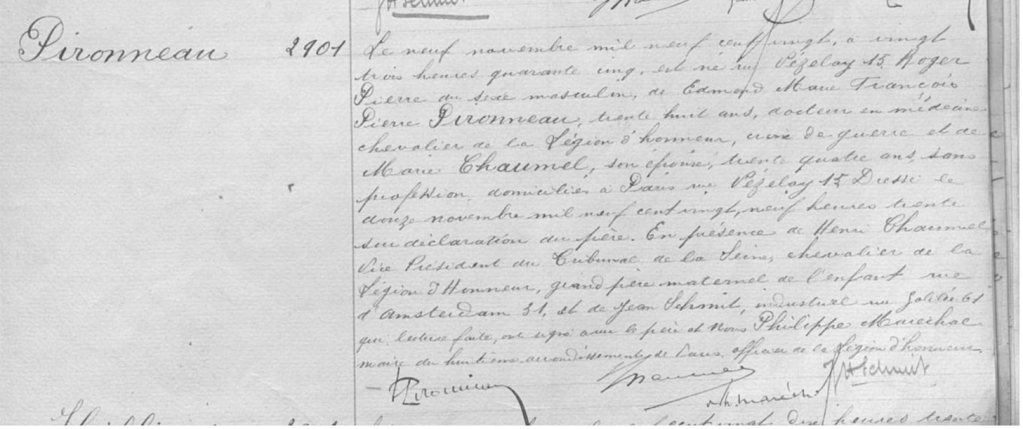 Pironneau 2901
Le neuf novembre mil neuf cent vingt, à vingt
trois heures quarante cinq, est né rue Vézelay 15 Roger
Pierre du sexe masculin, de Edmond Marie François
Pierre Pironneau, trente huit ans, docteur en médecine
chevalier de la Légion d'honneur, croix de guerre et de
Marie Chaumel, son épouse, trente quatre ans, sans
profession, domiciliés à Paris rue Vézelay 15 Dressé le
douze novembre mil neuf cent vingt, neuf heures trente
sur déclaration du père. En présence de Henri Chaumel,
Vice Président du Tribunal de la Seine, chevalier de la
Légion d'Honneur, grand père maternel de l'enfant rue
d'Amsterdam 31, et de Jean Schmit, industriel rue Galilée 61
qui, lecture faite, ont signé avec le père et Nous Philippe Maréchal
maire du huitième arrondissement de Paris, officier de la Légion d'honneur
Pironneau
Schmit